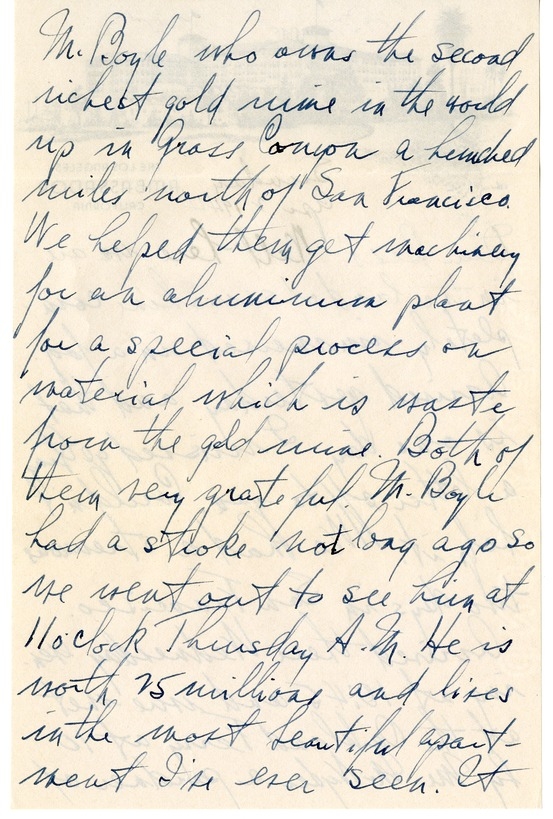 Mr. Boyle who owns the second
richest gold mine in the world
up in Grass Canyon a hundred
miles north of San Francisco.
We helped them get machinery
for an aluminum plant
for a special process on
material which is waste
from the gold mine. Both of
them very grateful. Mr. Boyle
had a stroke not long ago so
we went out to see him at
11 o'clock Thursday A.M. He is
worth 25 millions and lives
in the most beautiful apart-
ment I've ever seen. It